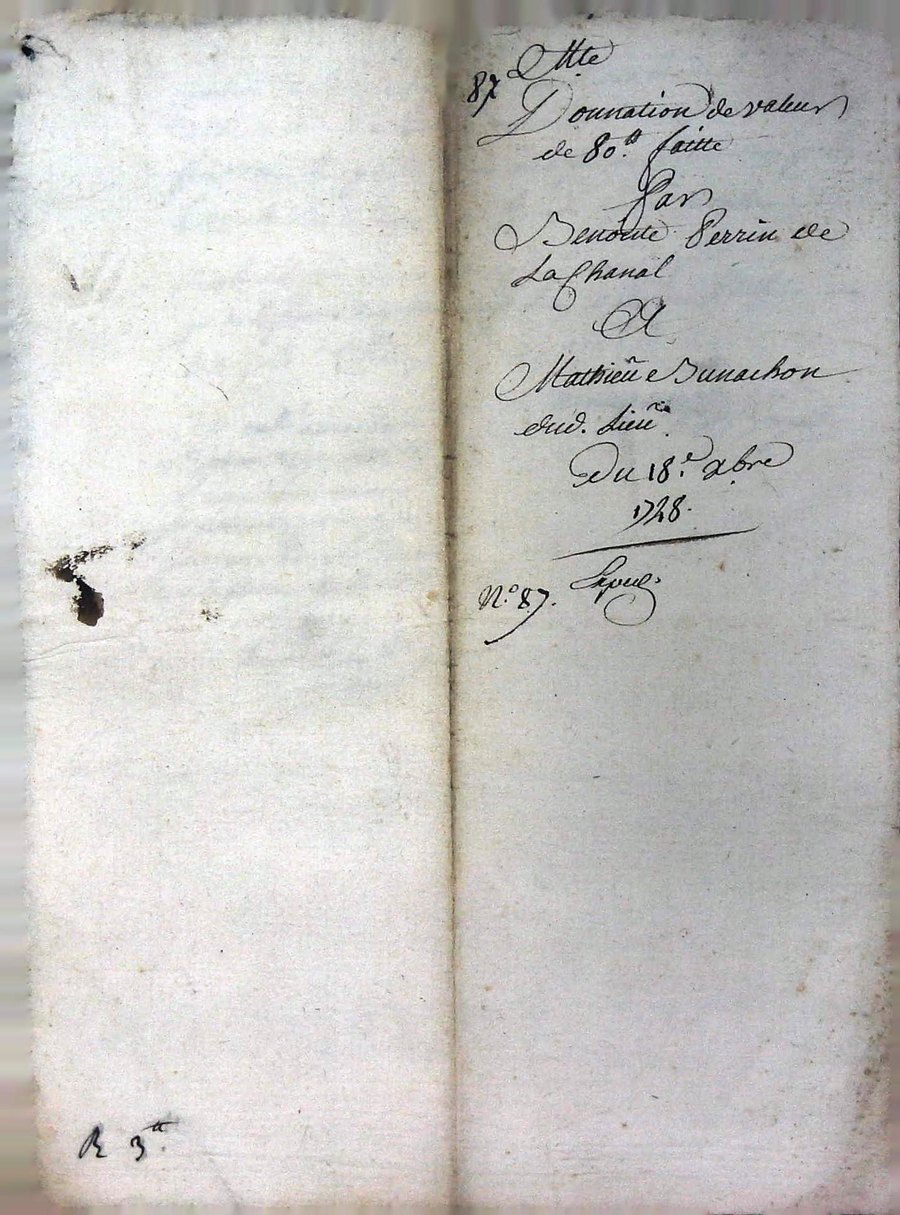 87
Donnation de valeur
de 80.tt faitte
Par
Benoite Perrin de
La Chanal
A
Mathieu e Bunachon
dud. Lieu
Du 18.e xbre
1728.
N.o 87.
R 3tt